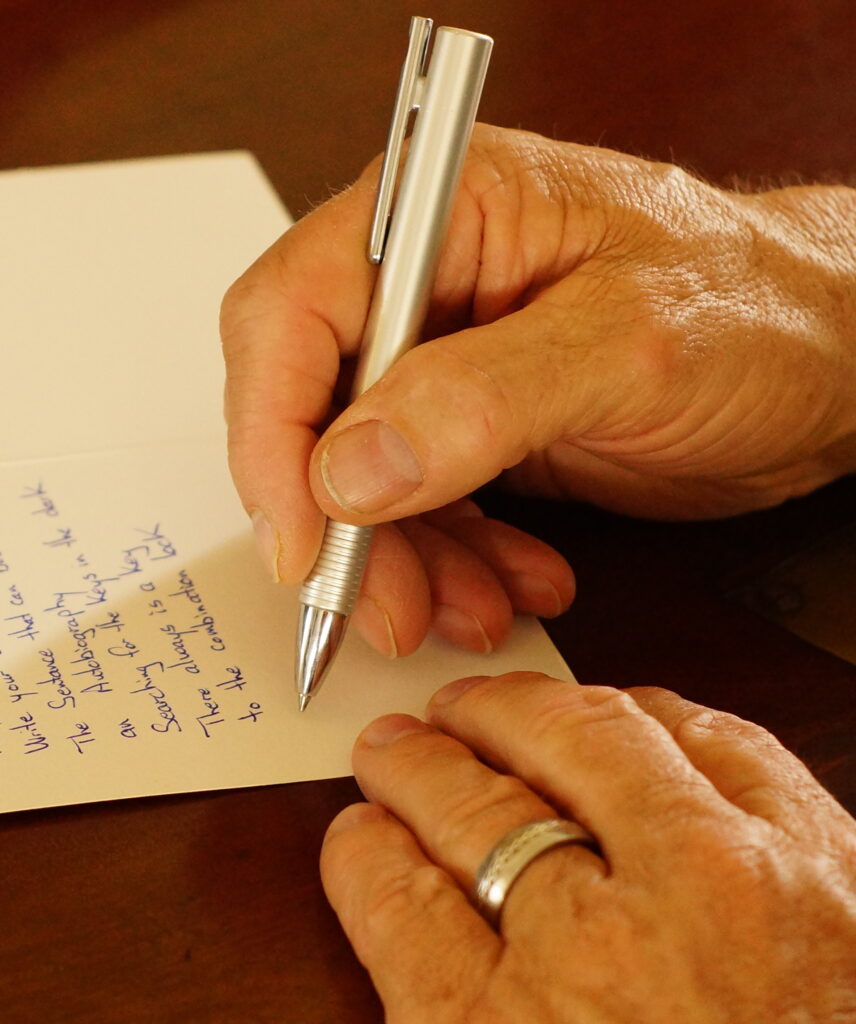 Write your
that can
The Sentence
an Autobiography
Searching for the keys in the dark
There always is a key
to the combination lock